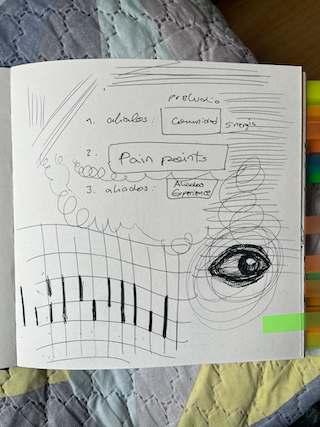 preludio
1. aliados: Comunidad Sinergia
2. Pain points
3. aliados: Aliados
Experience